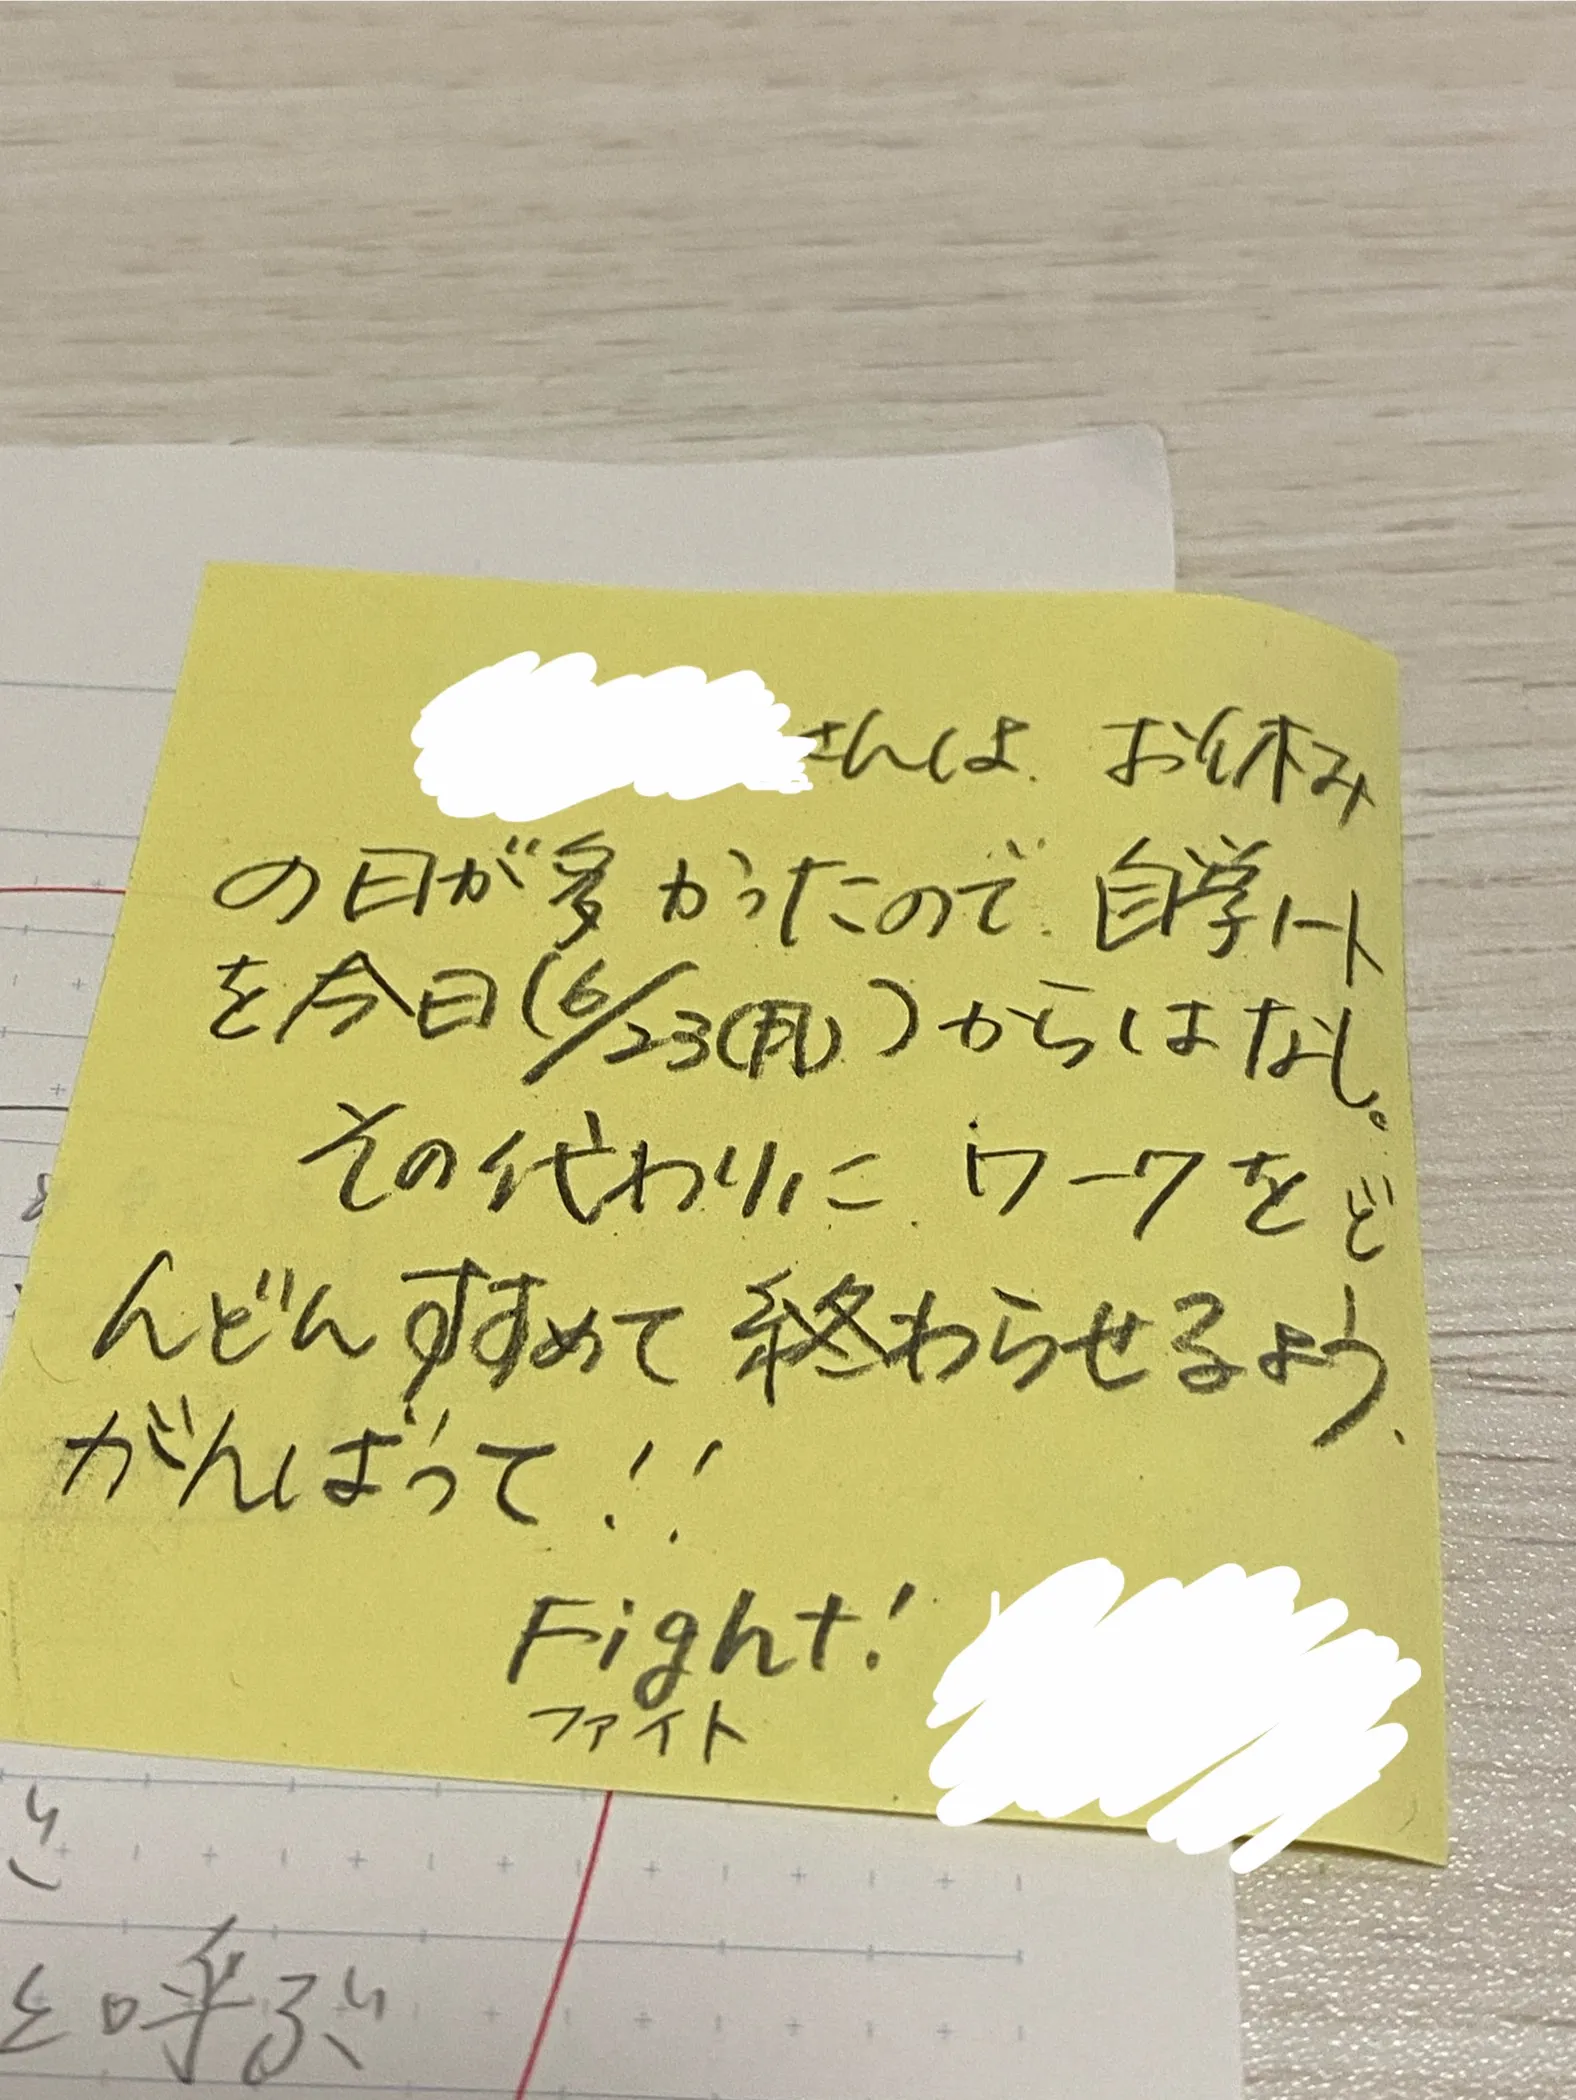 さんは、お休み
の日が多かったので、自学ノート
を今日(6/23(月))からはなし。
その代わりに、ワークをど
んどんすすめて終わらせるよう、
がんばって!!
Fight!
ファイト
と呼ぶ